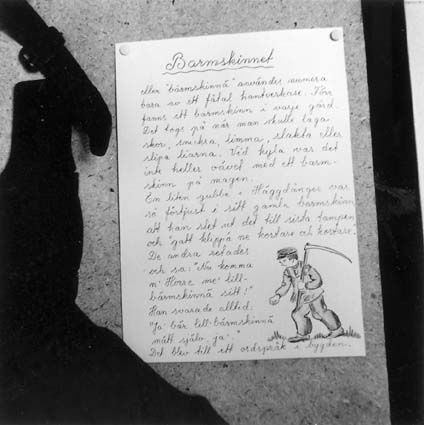 Barmskinnet
eller "bärmskinnä" användes numera
bara av ett fåtal hantverkare. Förr
fanns ett barmskinn i varje gård.
Det togs på när man skulle laga
skor, snickra, limma, slakta eller
slipa liarna. Vid kyla var det
inte heller oävet med ett barm-
skinn på magen.
En liten gubbe i Häggdånger var
så förtjust i sitt gamla barmskinn
att han slet ut det till sista lampen
och "gatt klippä ne kortare och kortare.
De andra retades
och sa: "Nu komma
n' me' till-
bärmskinnä sitt!"
Han svarade alltid:
"Ja' bär till bärmskinnä
mitt själv, ja'."
Det blev till ett ordspråk i bygden.